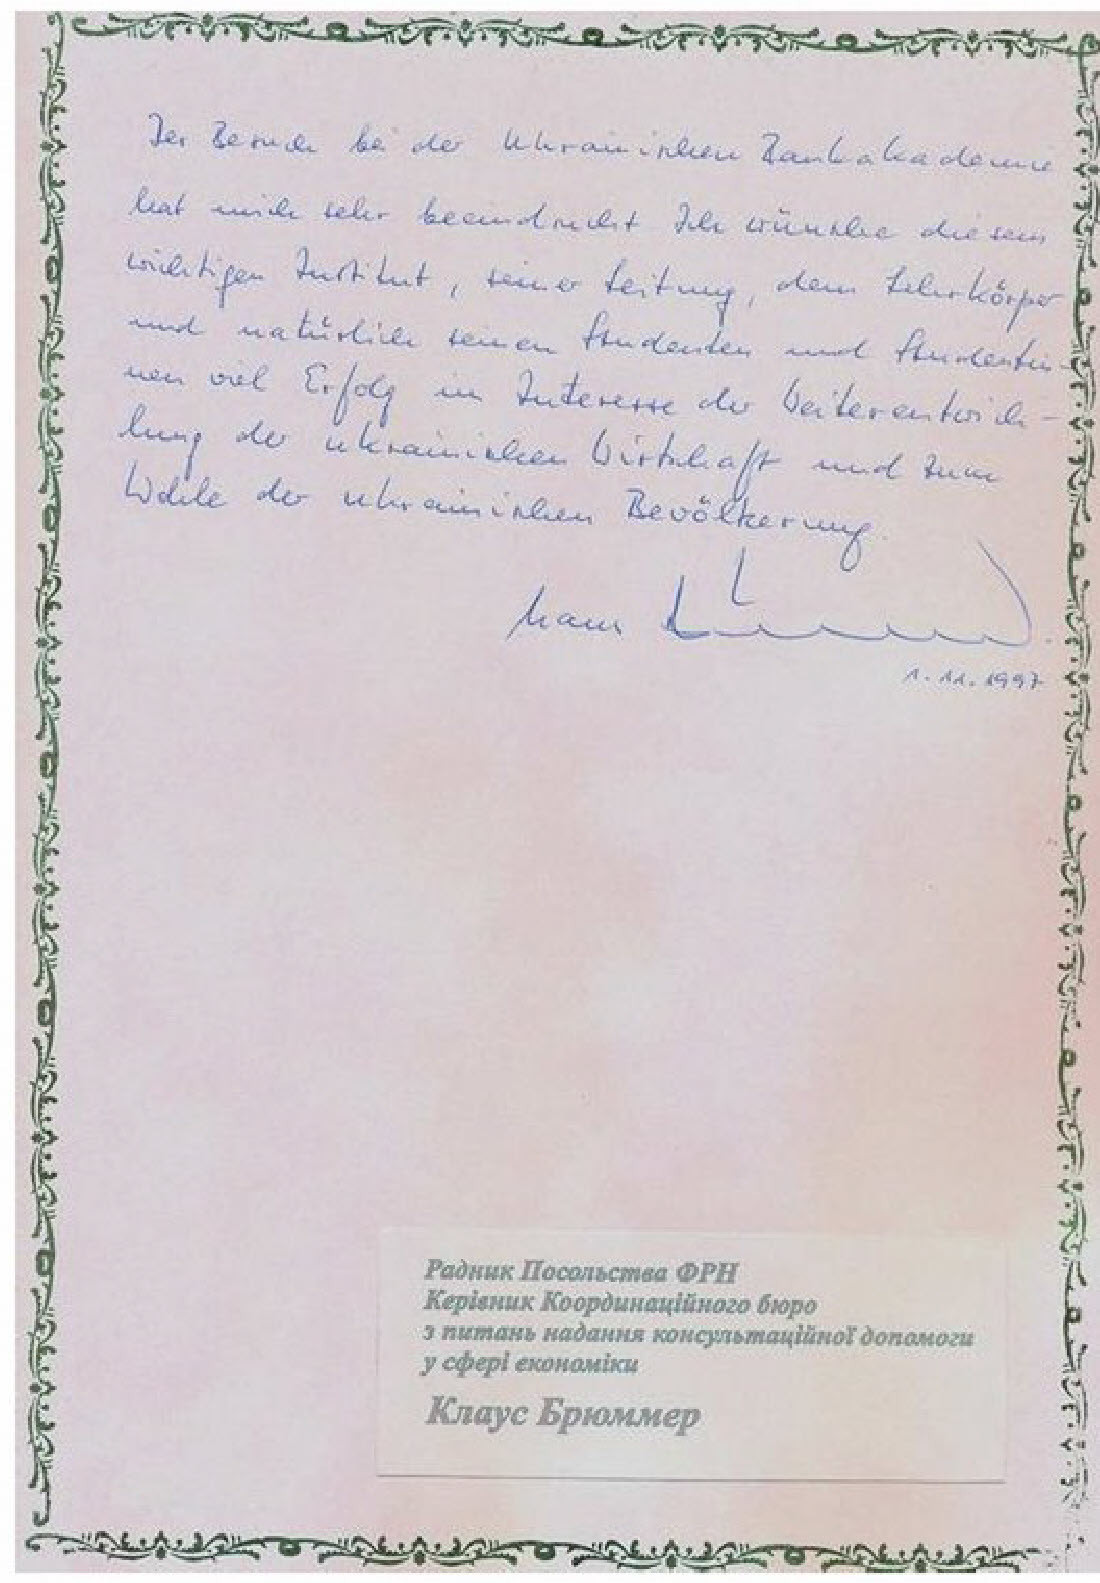 Der Besuch bei der Ukrainischen Bankakademie
hat mich sehr beeindruckt. Ich wünsche diesem
wichtigen Institut, seiner Leitung, dem Lehrkörper
und natürlich seinen Studenten und Studentin-
nen viel Erfolg im Interesse der Weiterentwick-
lung der ukrainischen Wirtschaft und zum
Wohle der ukrainischen Bevölkerung.
Klaus
1.11.1997
Радник Посольства ФРН
Керівник Координаційного бюро
з питань надання консультаційної допомоги
у сфері економіки
Клаус Брюммер